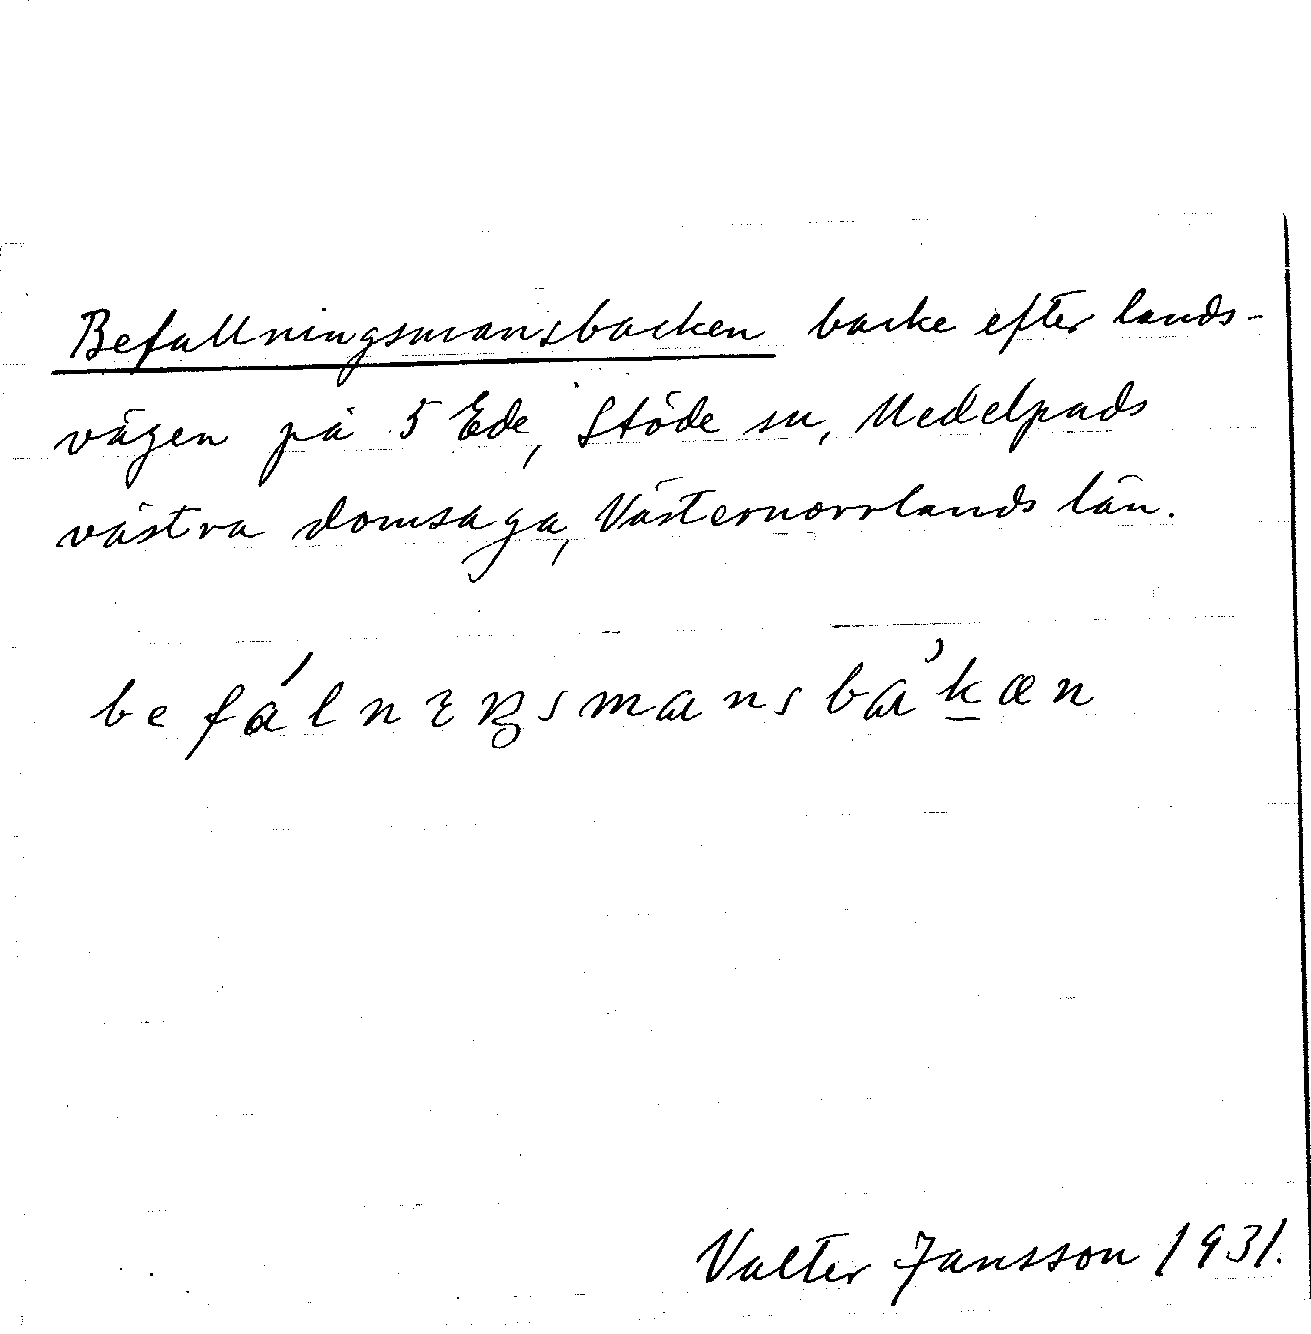 Befallningsmansbacken backe efter lands-
vägen på 5 Ede, Stöde sn, Medelpads
västra domsaga, Västernorrlands län.
befálnıŋsmansbaʼk̲æn
Valter Jansson 1931.